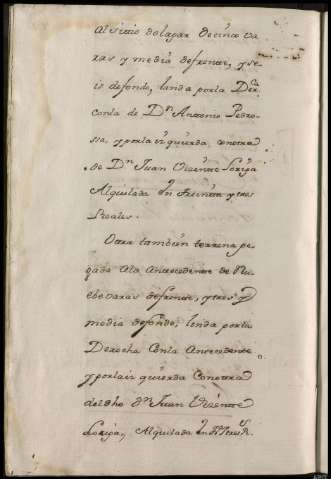 al sitio do lagar de cinco va
ras y media de frente, y se
is de fondo, linda por la Der.
con la de Dn. Antonio Pedro
sa, y por la izquierda con otra
de Dn. Juan Vizente Loriga
Alquilada En treinta y tres
Reales.
Otra tambien terrena pe
gada ala Antecedente de Nu
ebe varas de frente, y tres y
media de fondo; linda por la
Derecha Con la Antecedente
y por la iz quierda Con otra
del dho Dn. Juan Vizente
Loriga, Alquilada En